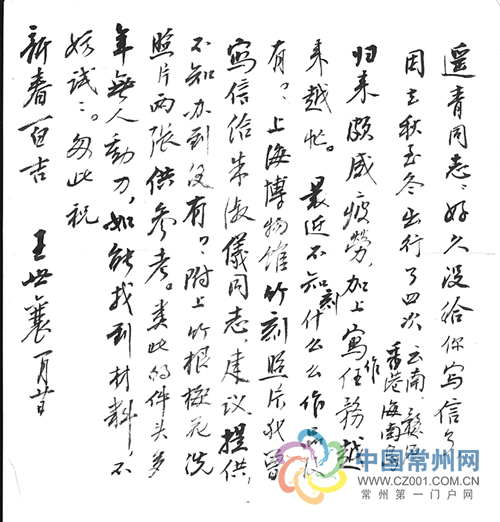 遥青同志：好久没给你写信了，
因去秋至冬出行了四次 云南、
香港海南
归来颇感疲勞，加上寫作任務越
来越忙。最近不知刻什么么作品没
有？上海博物館竹刻照片我曾
寫信给朱淑儀同志，建议提供，
不知办到没有？附上竹根花洗
照片两张供参考。类此的件头多
年無人動刀，如能找到材料，不
妨试:。匆此祝
新春百吉
王世襄 一月廿日
中国常州网
WWW.CZ001.COM.CN
常州第一门户网